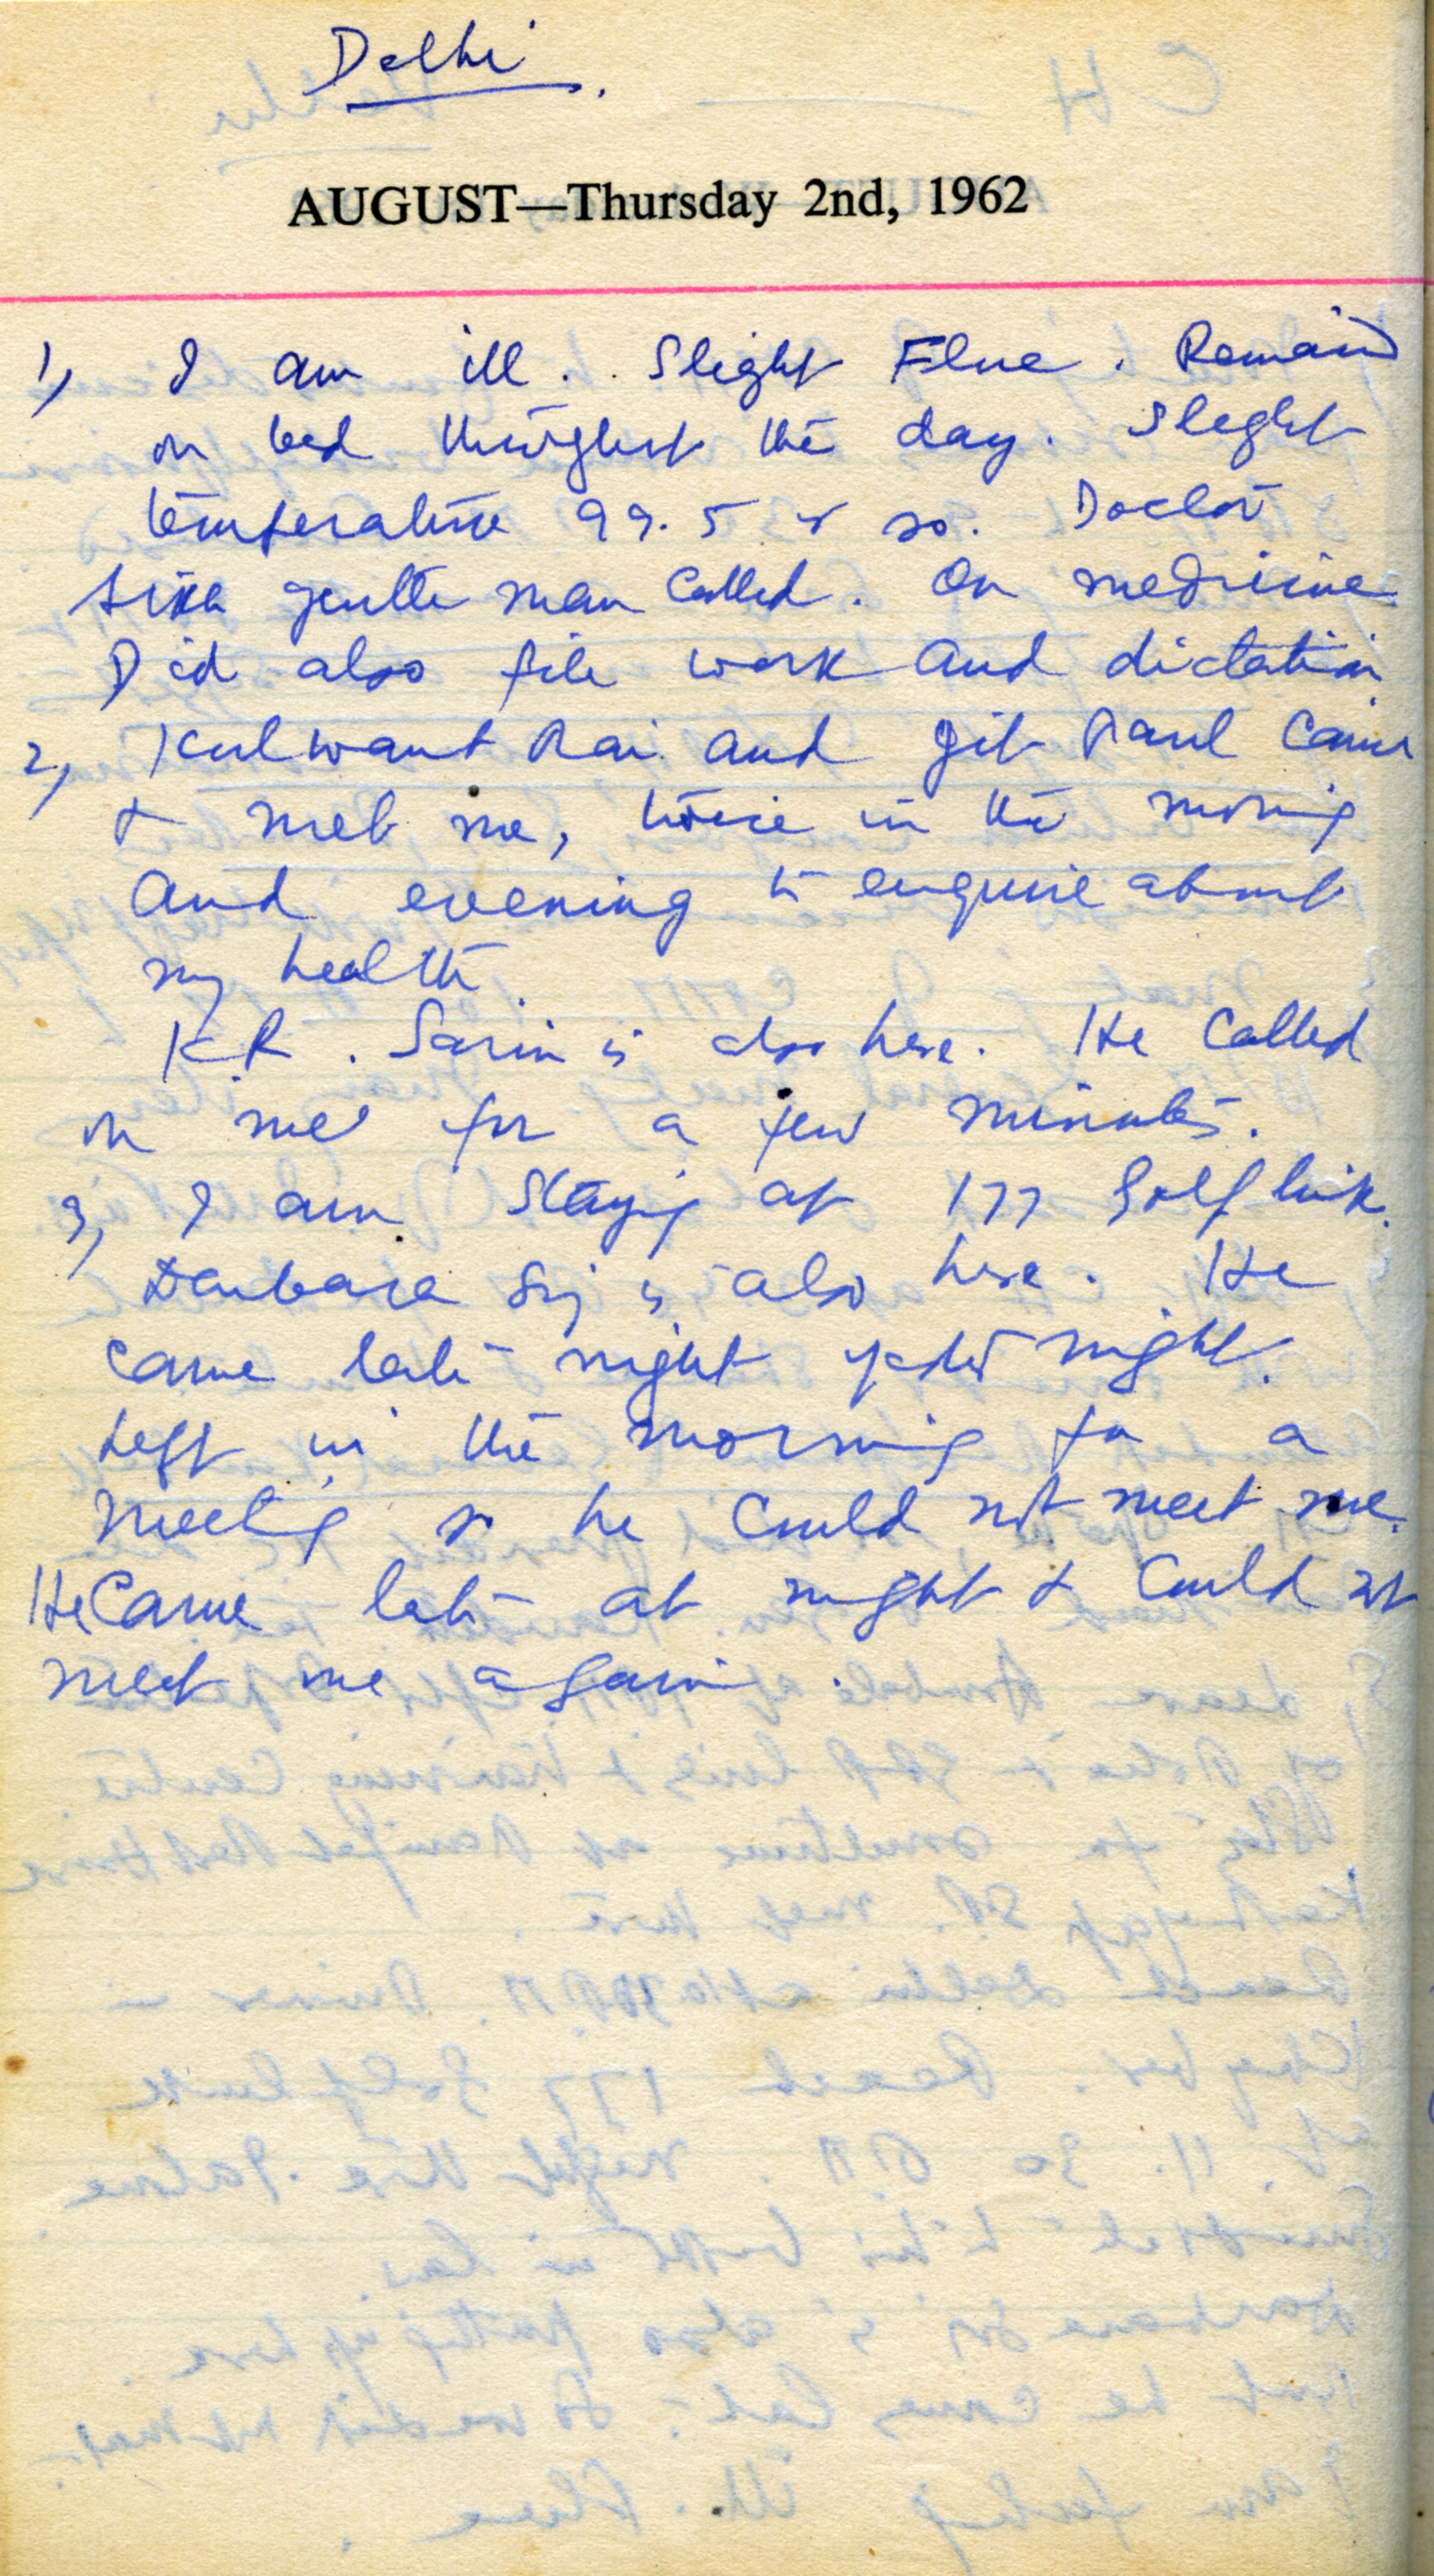 Delhi
AUGUST—Thursday 2nd, 1962
1, I am ill. Slight Flue. Remain
on bed throughout the day. Slight
temperature 99.5 or so. Doctor
gentle man called. On medicine
Did also file work and dictation
2, Kulwant Rai and Jit Paul came
& met me, twice in the morning
and evening to enquire about
my health.
K.R. Sarin is also here. He called
on me for a few minutes.
3, I am staying at 177 Golf link.
Darbara Sing is also here. He
came late night yester night.
Left in the morning for a
meeting so he could not meet me.
He came late at night & could not
meet me again.